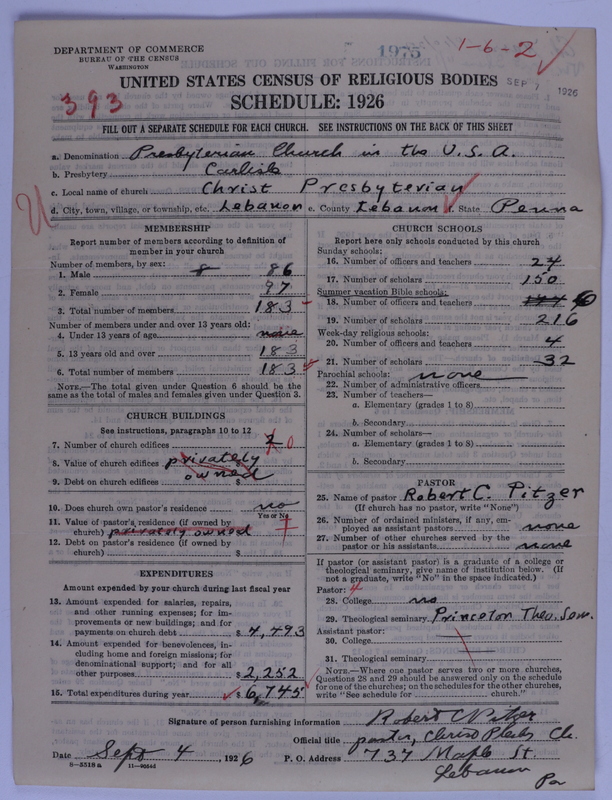 DEPARTMENT OF COMMERCE
BUREAU OF THE CENSUS
WASHINGTON
1975
1-6-2
UNITED STATES CENSUS OF RELIGIOUS BODIES
SEP 7 1926
393
SCHEDULE: 1926
FILL OUT A SEPARATE SCHEDULE FOR EACH CHURCH. SEE INSTRUCTIONS ON THE BACK OF THIS SHEET
a. Denomination Presbyterian Church in the U.S.A.
b. Presbytery Carlisle
c. Local name of church Christ Presbyterian
d. City, town, village, or township, etc. Lebanon e. County Lebanon f. State Penna
MEMBERSHIP
Report number of members according to definition of member in your church
Number of members, by sex:
1. Male 86
2. Female 97
3. Total number of members 183
Number of members under and over 13 years old:
4. Under 13 years of age none
5. 13 years old and over 183
6. Total number of members 183
NOTE.—The total given under Question 6 should be the
same as the total of males and females given under Question 3.
CHURCH BUILDINGS
See instructions, paragraphs 10 to 12
7. Number of church edifices 0
8. Value of church edifices privately
9. Debt on church edifices owned $
10. Does church own pastor's residence no
Yes or No
11. Value of pastor's residence (if owned by
church) privately owned
12. Debt on pastor's residence (if owned by
church) $
EXPENDITURES
Amount expended by your church during last fiscal year
13. Amount expended for salaries, repairs,
and other running expenses; for im-
provements or new buildings; and for
payments on church debt $ 4,493
14. Amount expended for benevolences, in-
cluding home and foreign missions; for
denominational support; and for all
other purposes $ 2,252
15. Total expenditures during year $ 6,745
CHURCH SCHOOLS
Report here only schools conducted by this church
Sunday schools:
16. Number of officers and teachers 24
17. Number of scholars 150
Summer vacation Bible schools:
18. Number of officers and teachers
19. Number of scholars 216
Week-day religious schools:
20. Number of officers and teachers 4
21. Number of scholars 32
Parochial schools: none
22. Number of administrative officers
23. Number of teachers—
a. Elementary (grades 1 to 8)
b. Secondary
24. Number of scholars—
a. Elementary (grades 1 to 8)
b. Secondary
PASTOR
25. Name of pastor Robert C. Pitzer
(If church has no pastor, write "None")
26. Number of ordained ministers, if any, em-
ployed as assistant pastors none
27. Number of other churches served by the
pastor or his assistants none
If pastor (or assistant pastor) is a graduate of a college or
theological seminary, give name of institution below. (If
not a graduate, write "No" in the space indicated.)
Pastor: 4
28. College no
29. Theological seminary Princeton Theo. Sem.
Assistant pastor:
30. College
31. Theological seminary
NOTE.—Where one pastor serves two or more churches,
Questions 28 and 29 should be answered only on the schedule
for one of the churches; on the schedules for the other churches,
write "See schedule for church."
Signature of person furnishing information Robert C Pitzer
Official title pastor, Christ Presby Ch.
Date Sept 4, 1926 P. O. Address 737 Maple St.
8—5518a 11—9054d
Lebanon Pa